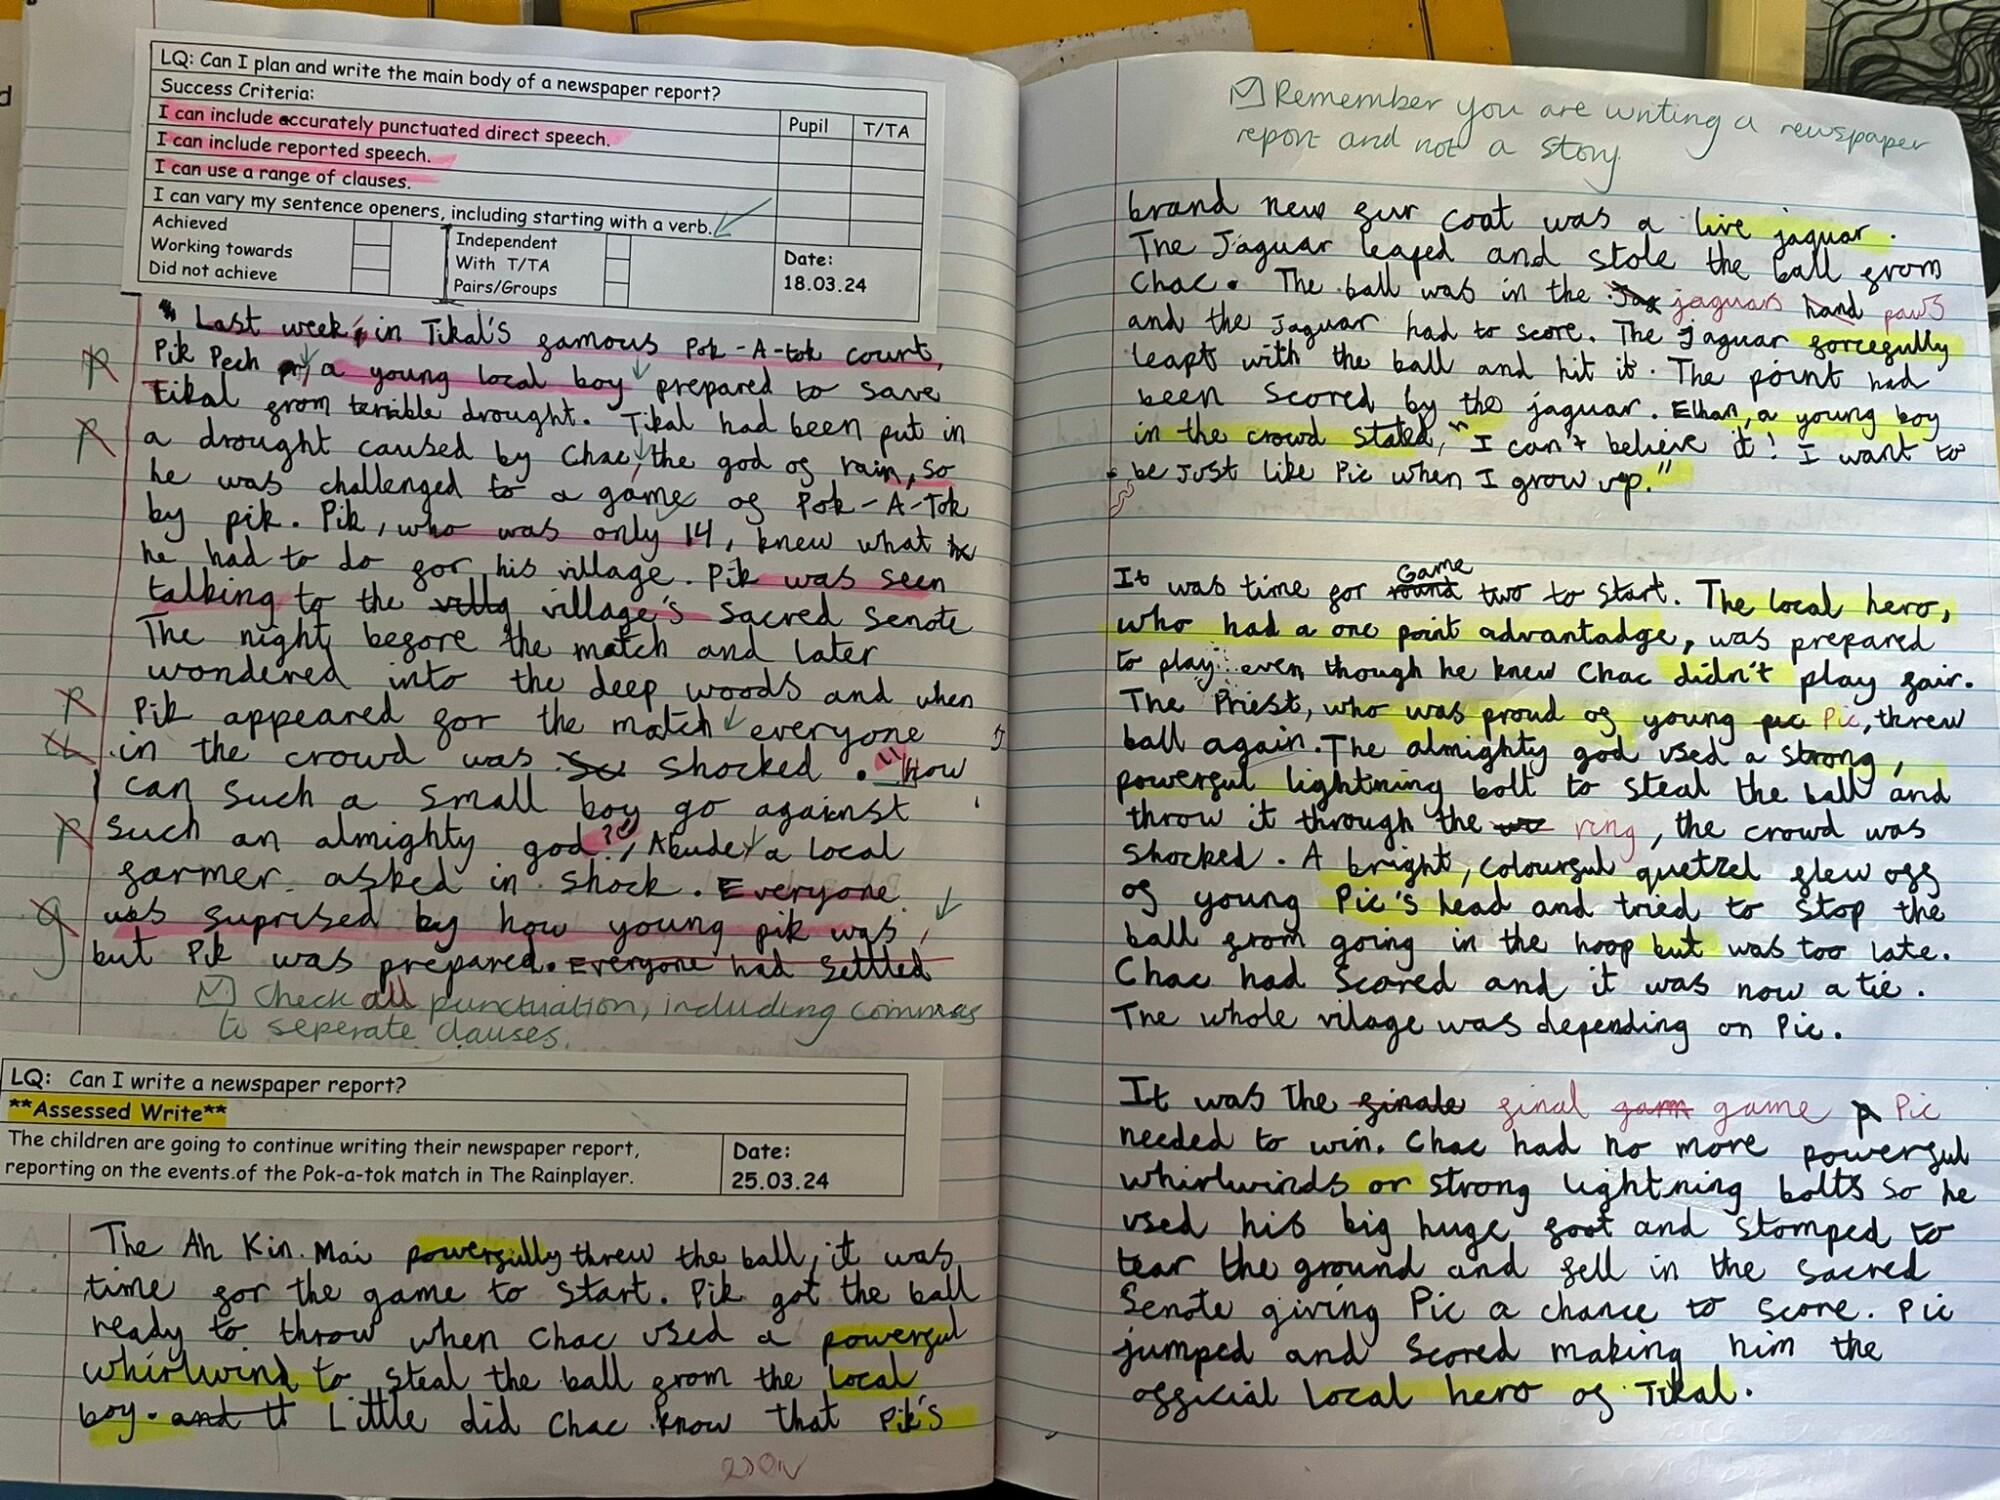 LQ: Can I plan and write the main body of a newspaper report?
Success Criteria:
Pupil T/TA
I can include accurately punctuated direct speech.
I can include reported speech.
I can use a range of clauses.
I can vary my sentence openers, including starting with a verb.
Achieved
Working towards
Did not achieve
Independent
With T/TA
Pairs/Groups
Date:
18.03.24
Last week, in Tikal's famous Pok-A-tok court,
Pik Pech, a young local boy, prepared to save
Tikal from terrible drought. Tikal had been put in
a drought caused by Chac, the god of rain, so
he was challenged to a game of Pok-A-Tok
by pik. Pik, who was only 14, knew what he
he had to do for his village. Pik was seen
talking to the villg village's sacred senote
The night before the match and later
wondered into the deep woods and when
Pik appeared for the match everyone
in the crowd was shocked. "How
can such a small boy go against
such an almighty god?", Akude, a local
farmer asked in shock. Everyone
was suprised by how young pik was,
but Pik was prepared. Everyone had settled
Check all punctuation, including commas
to seperate clauses.
LQ: Can I write a newspaper report?
**Assessed Write**
The children are going to continue writing their newspaper report,
reporting on the events of the Pok-a-tok match in The Rainplayer.
Date:
25.03.24
The Ah Kin Mai powerfully threw the ball, it was
time for the game to start. Pik got the ball
ready to throw when Chac used a powerful
whirlwind to steal the ball from the local
boy. and it Little did Chac know that Pik's
Remember you are writing a newspaper
report and not a story.
brand new fur coat was a live jaguar.
The Jaguar leaped and stole the ball from
Chac. The ball was in the Jag jaguars hand paws
and the Jaguar had to score. The Jaguar forcefully
leapt with the ball and hit it. The point had
been scored by the jaguar. Ethan, a young boy
in the crowd stated, "I can't believe it! I want to
be Just like Pic when I grow up."
It was time for round Game two to start. The local hero,
who had a one point advantadge, was prepared
to play even though he knew Chac didn't play fair.
The Priest, who was proud of young pic Pic, threw
ball again. The almighty god used a strong,
powerful lightning bolt to steal the ball and
throw it through the ring, the crowd was
shocked. A bright, colourful quetzel flew off
of young Pic's head and tried to stop the
ball from going in the hoop but was too late.
Chac had scored and it was now a tie.
The whole vilage was depending on Pic.
It was the finale final gam game Pic
needed to win. Chac had no more powerful
whirlwinds or strong lightning bolts so he
used his big huge foot and stomped to
tear the ground and fell in the sacred
Senote giving Pic a chance to score. Pic
jumped and scored making him the
official local hero of Tikal.